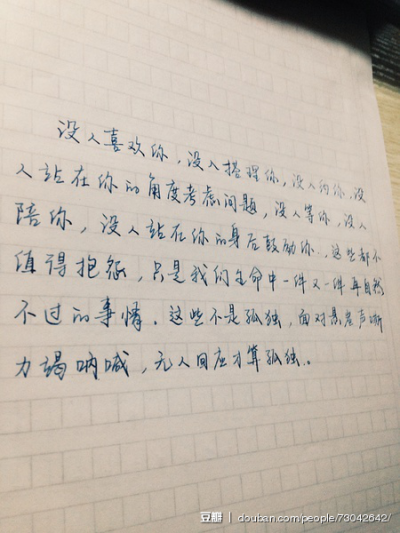 没人喜欢你，没人搭理你，没人约你，没
人站在你的角度考虑问题，没人等你，没人
陪你，没人站在你的身后鼓励你..这些都不
值得抱怨，只是我们生命中一件又一件再自然
不过的事情。这些不是孤独，面对悬崖声嘶
力竭呐喊，无人回应才算孤独。.
豆瓣 | douban.com/people/73042642/